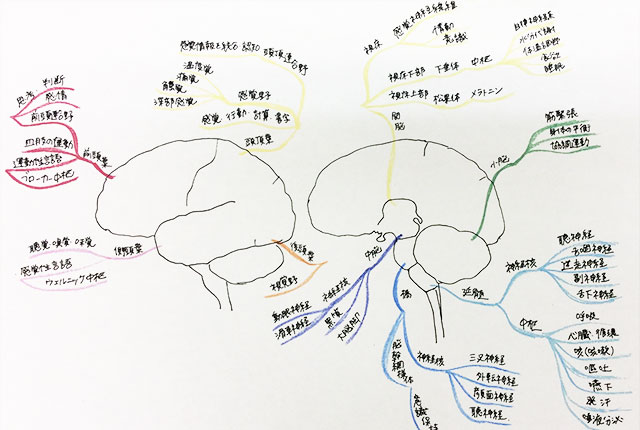 判断
思考
感情
前頭連合野
四肢の運動
運動性言語
ブローカー中枢
前頭葉
感覚情報を統合 認知
頭頂連合野
温痛覚
痛覚
触覚
深部感覚
感覚野
感覚
行動・計算・書字
頭頂葉
視床
感覚神経系統
情動
意識
視床下部
下垂体
中枢
自律神経系
水分代謝
体温調節
食欲
睡眠
視床上部
松果体
メラトニン
間脳
小脳
筋緊張
身体の平衡
協調運動
聴覚・嗅覚・味覚
感覚性言語
ウェルニッケ中枢
側頭葉
後頭葉
視覚野
中脳
神経核
動眼神経
滑車神経
黒質
大脳脚
橋
神経核
三叉神経
外転神経
顔面神経
聴神経
脳幹網様体
意識保持
延髄
神経核
聴神経
舌咽神経
迷走神経
副神経
舌下神経
中枢
呼吸
心臓
咳(咳嗽)
嘔吐
嚥下
発汗
唾液分泌